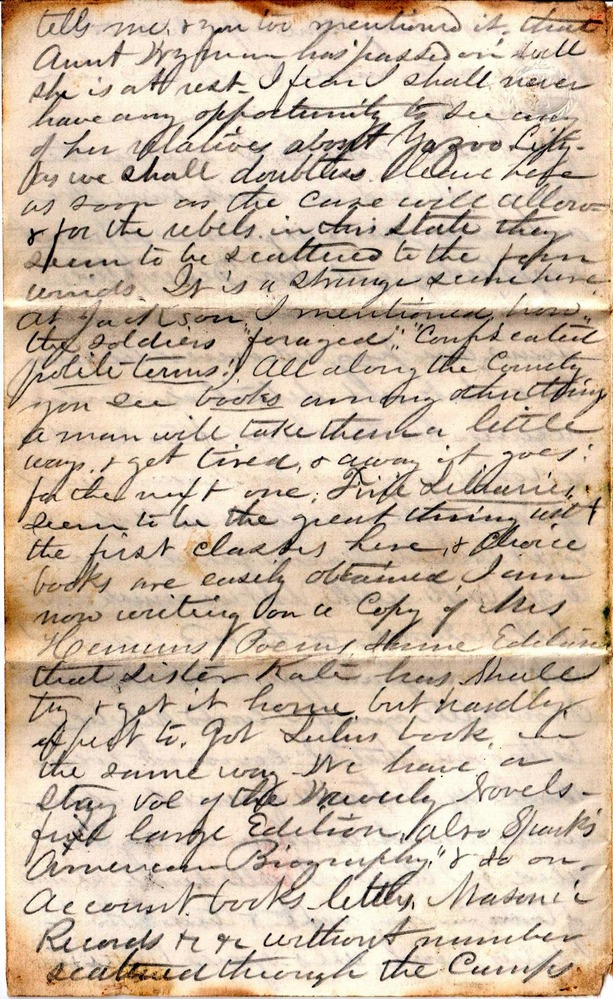 tells me, & you too mentioned it, that
Aunt Wyman has passed on well
she is at rest - I fear I shall never
have any opportunity to see any
of her relatives about Yazoo City -
As we shall doubtless leave here
as soon as the case will allow -
& for the rebels in this state they
seem to be scattered to the four
winds. It is a strange scene here
at Jackson I mentioned how
the soldiers "foraged". "Confiscated
polite terms!) All along the County
you see books among other things
a man will take them a little
ways, & get tired, & away it goes
for the next one; Fine Libraries,
seem to be the great thing with
the first classes here, & Choice
books are easily obtained I am
now writing on a Copy of Mrs
Hemans Poems, same Edition
that sister Kate has, shall
try & get it home but hardly
expect to. Got book in
the same way We have a
stray vol of the Waverly Novels -
fine large Edition, also Spark's
American Biography," & so on -
Account books letters, Masonic
Records &c &c without number
scattered through the Camps